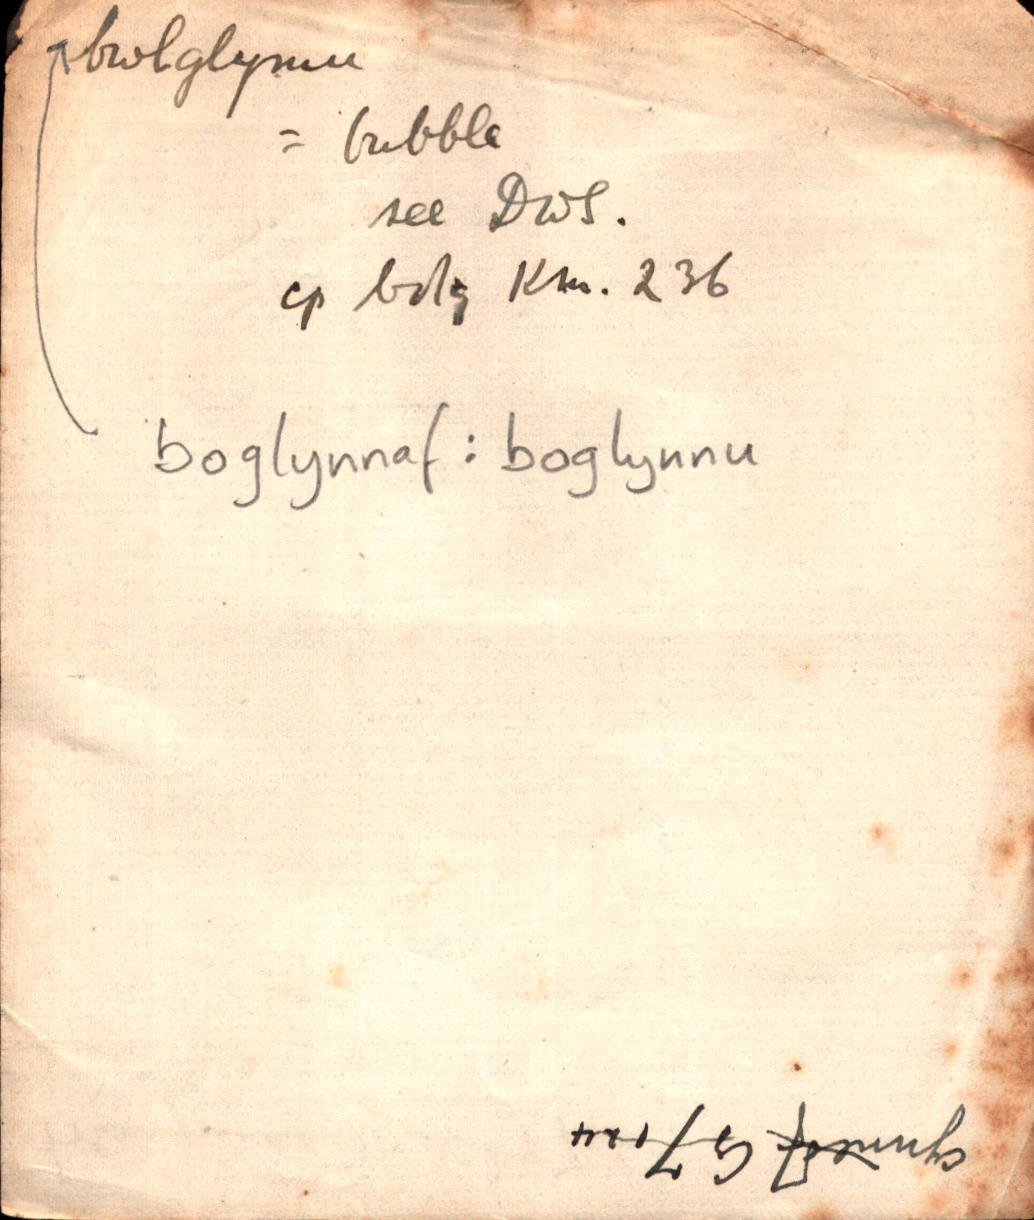 bwlglynnu
= bubble
see DWS.
cp bolg Km. 236
boglynnaf : boglynnu